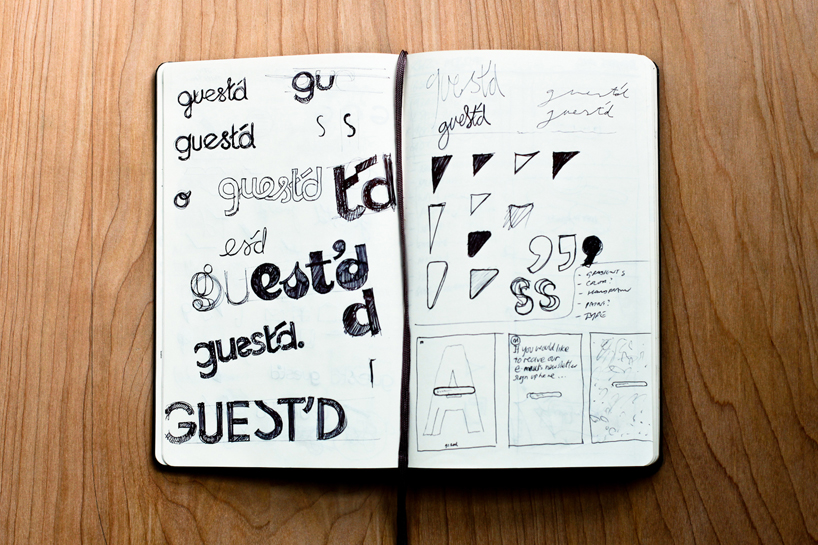 guest'd
gu
guest'd
s s
guest'd
t'd
es'd
guest'd
d
guest'd.
GUEST'D
guest'd
guest'd
guest'd
guest'd
S S
- GRADIENTS
- COLOR?
- TYPE
A
If you would like
to receive our
e-mails newsletter
sign up here...